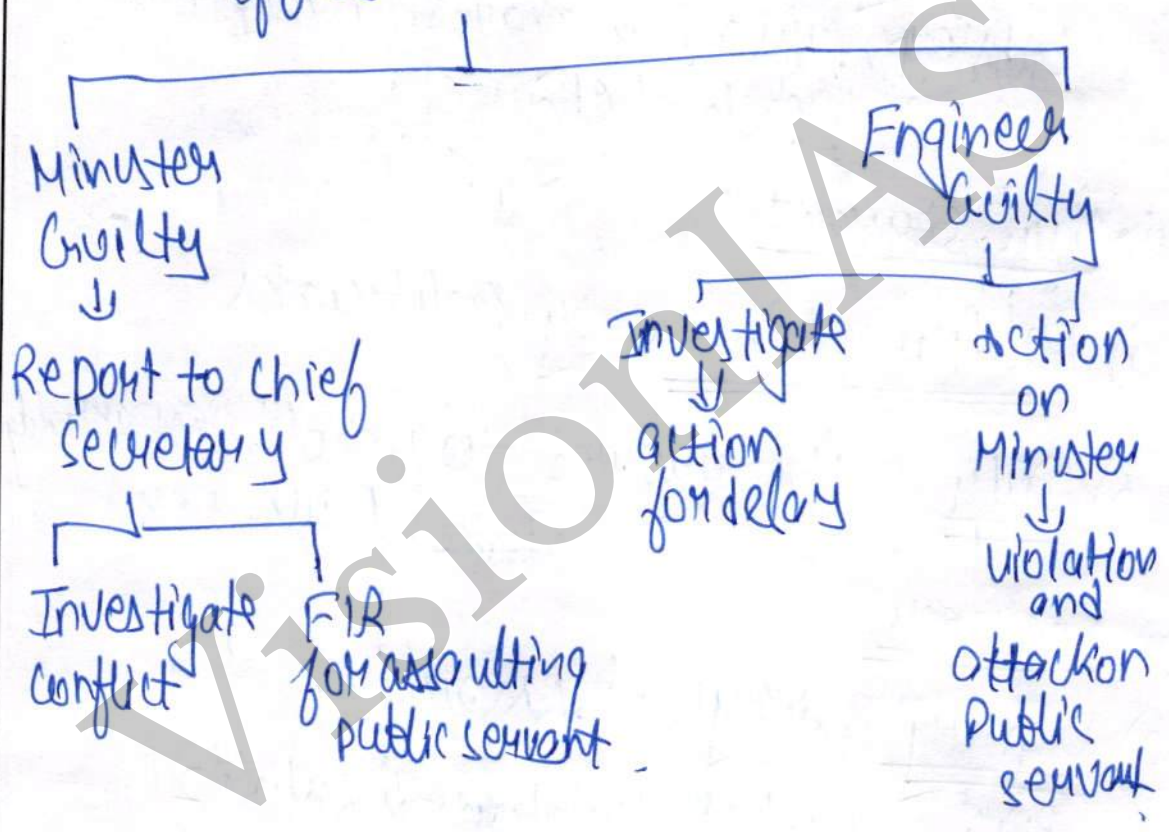 Minister
Guilty
↓
Report to chief
secretary
Investigate
conflict
FIR
for assaulting
public servant.
Engineer
Guilty
Investigate
↓
action
for delay
Action
on
Minister
↓
violation
and
attack on
Public
servant.
VisionIAS